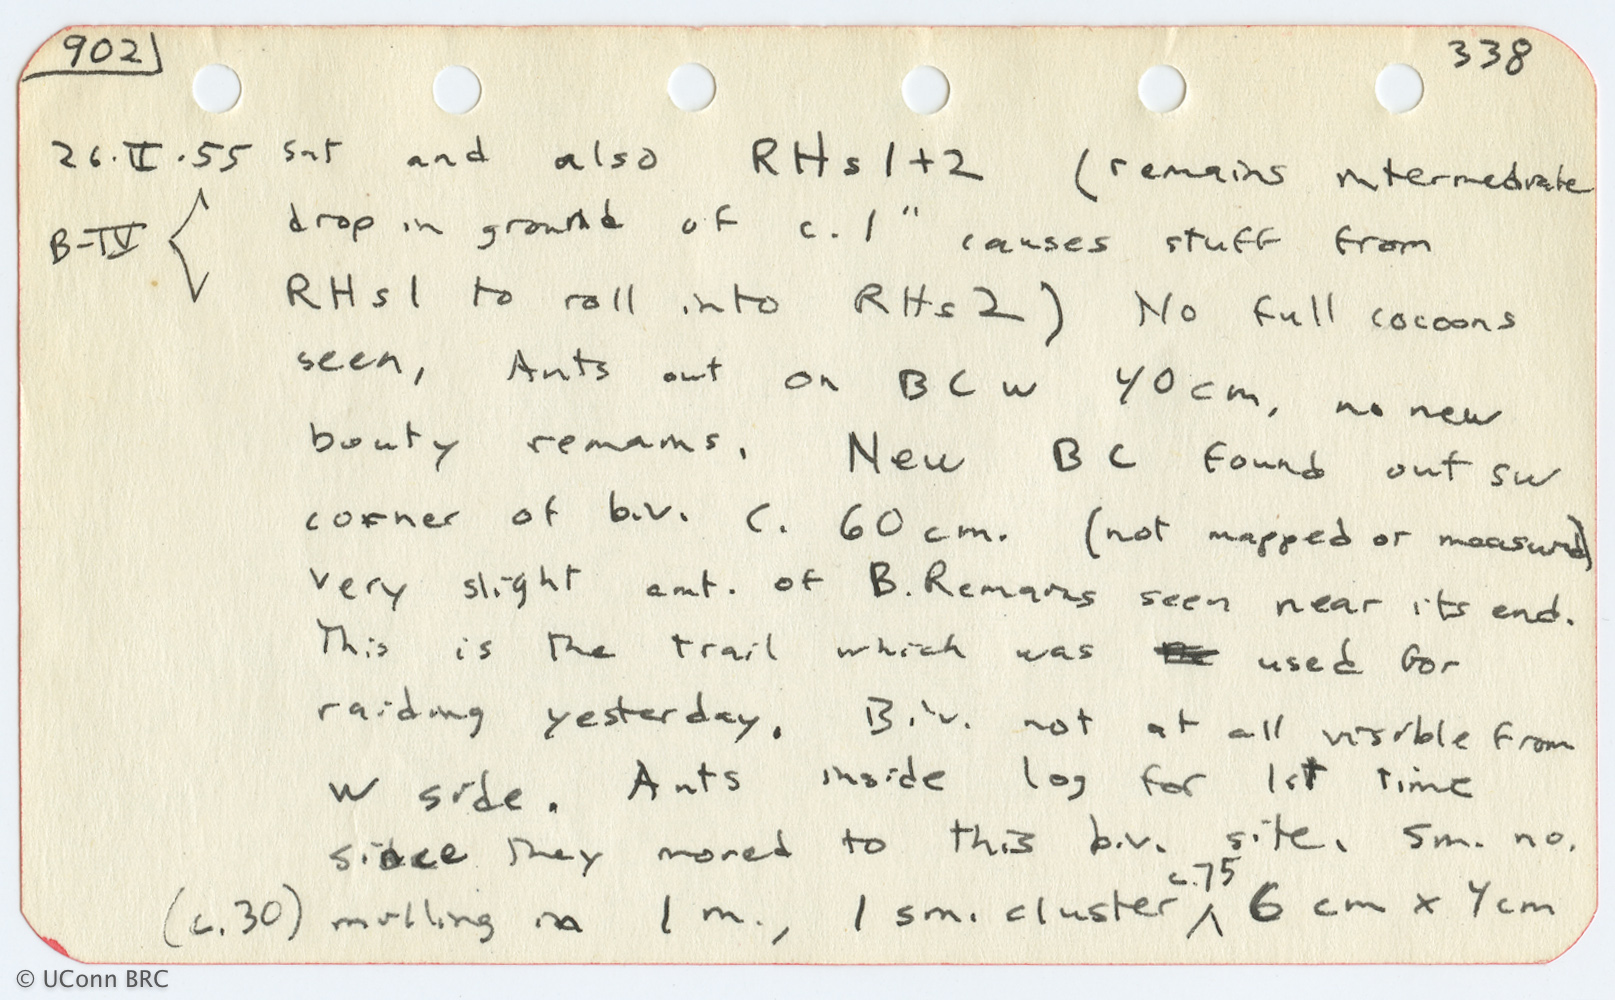 902
338
26.II.55 Sat and also RHs1+2 (remains intermediate
B-IV drop in ground of c. 1" causes stuff from
RHs1 to roll into RHs2) No full cocoons
seen, Ants out on BCW 40cm, no new
bouty remains. New BC found out SW
corner of b.v. c. 60 cm. (not mapped or measured)
very slight amt. of B. Remains seen near its end.
This is the trail which was used for
raiding yesterday. B.v. not at all visible from
W side. Ants inside log for 1st time
since they moved to this b.v. site. Sm. no.
(c.30) milling in 1 m., 1 sm. cluster c.75 6 cm x 4cm
© UConn BRC